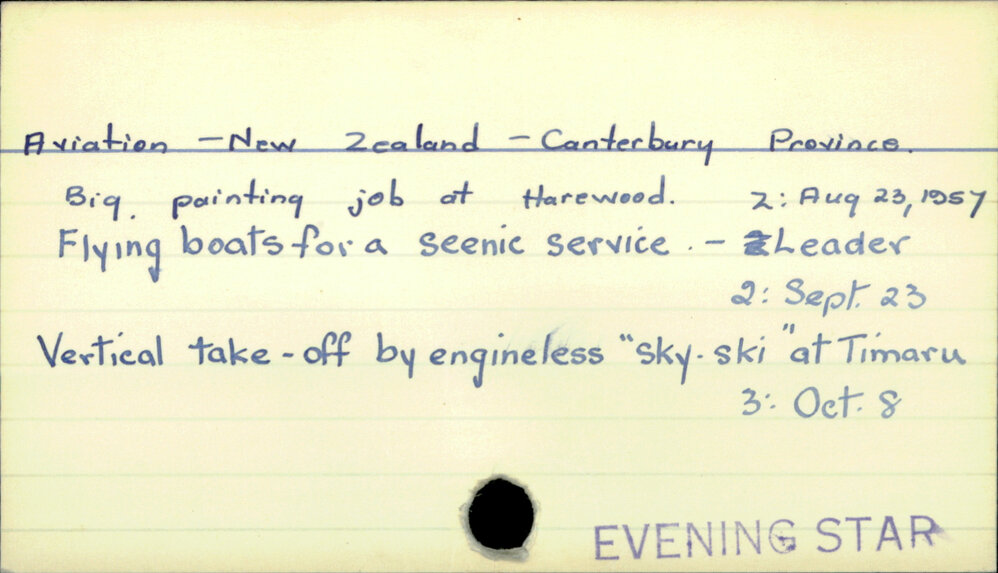 Aviation - New Zealand - Canterbury Province.
Big. painting job at Harewood. 2: Aug 23, 1957
Flying boats for a scenic service. - Leader
2: Sept. 23
Vertical take-off by engineless "sky-ski" at Timaru
3: Oct. 8
EVENING STAR